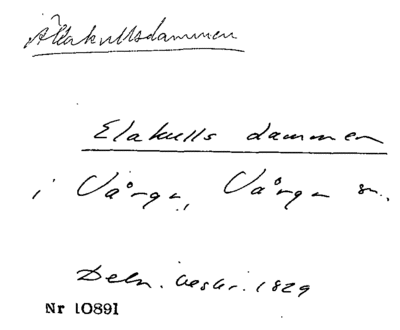 Ällakullsdammen
Elakulls dammen
i Vånga, Vånga sn.
Deln. beskr. 1829
Nr 10891